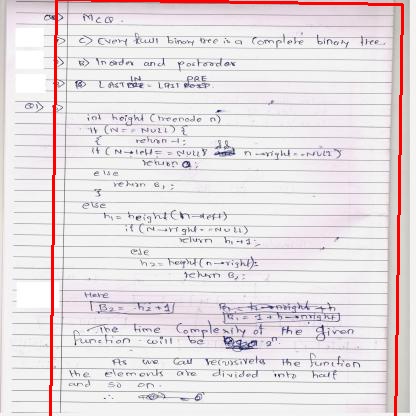 MCQ.
C) Every full binary tree is a complete binary tree.
B) Inorder and postorder
B) LAST IN = LAST PRE
Q1)
int height (treenode n)
if (N == NULL) {
{ return -1;
if (N→left == NULL && n→right == NULL)
return 0;
else
return B1;
}
else
h1 = height (n→left)
if (N→right == NULL)
return h1+1;
else
h2 = height (n→right);
return B2;
Here
B2 = h2+1
B1 = 1 + h→nright
The time complexity of the given
function will be 2^n
As we call recursively the function
the elements are divided into half
and so on.
∴